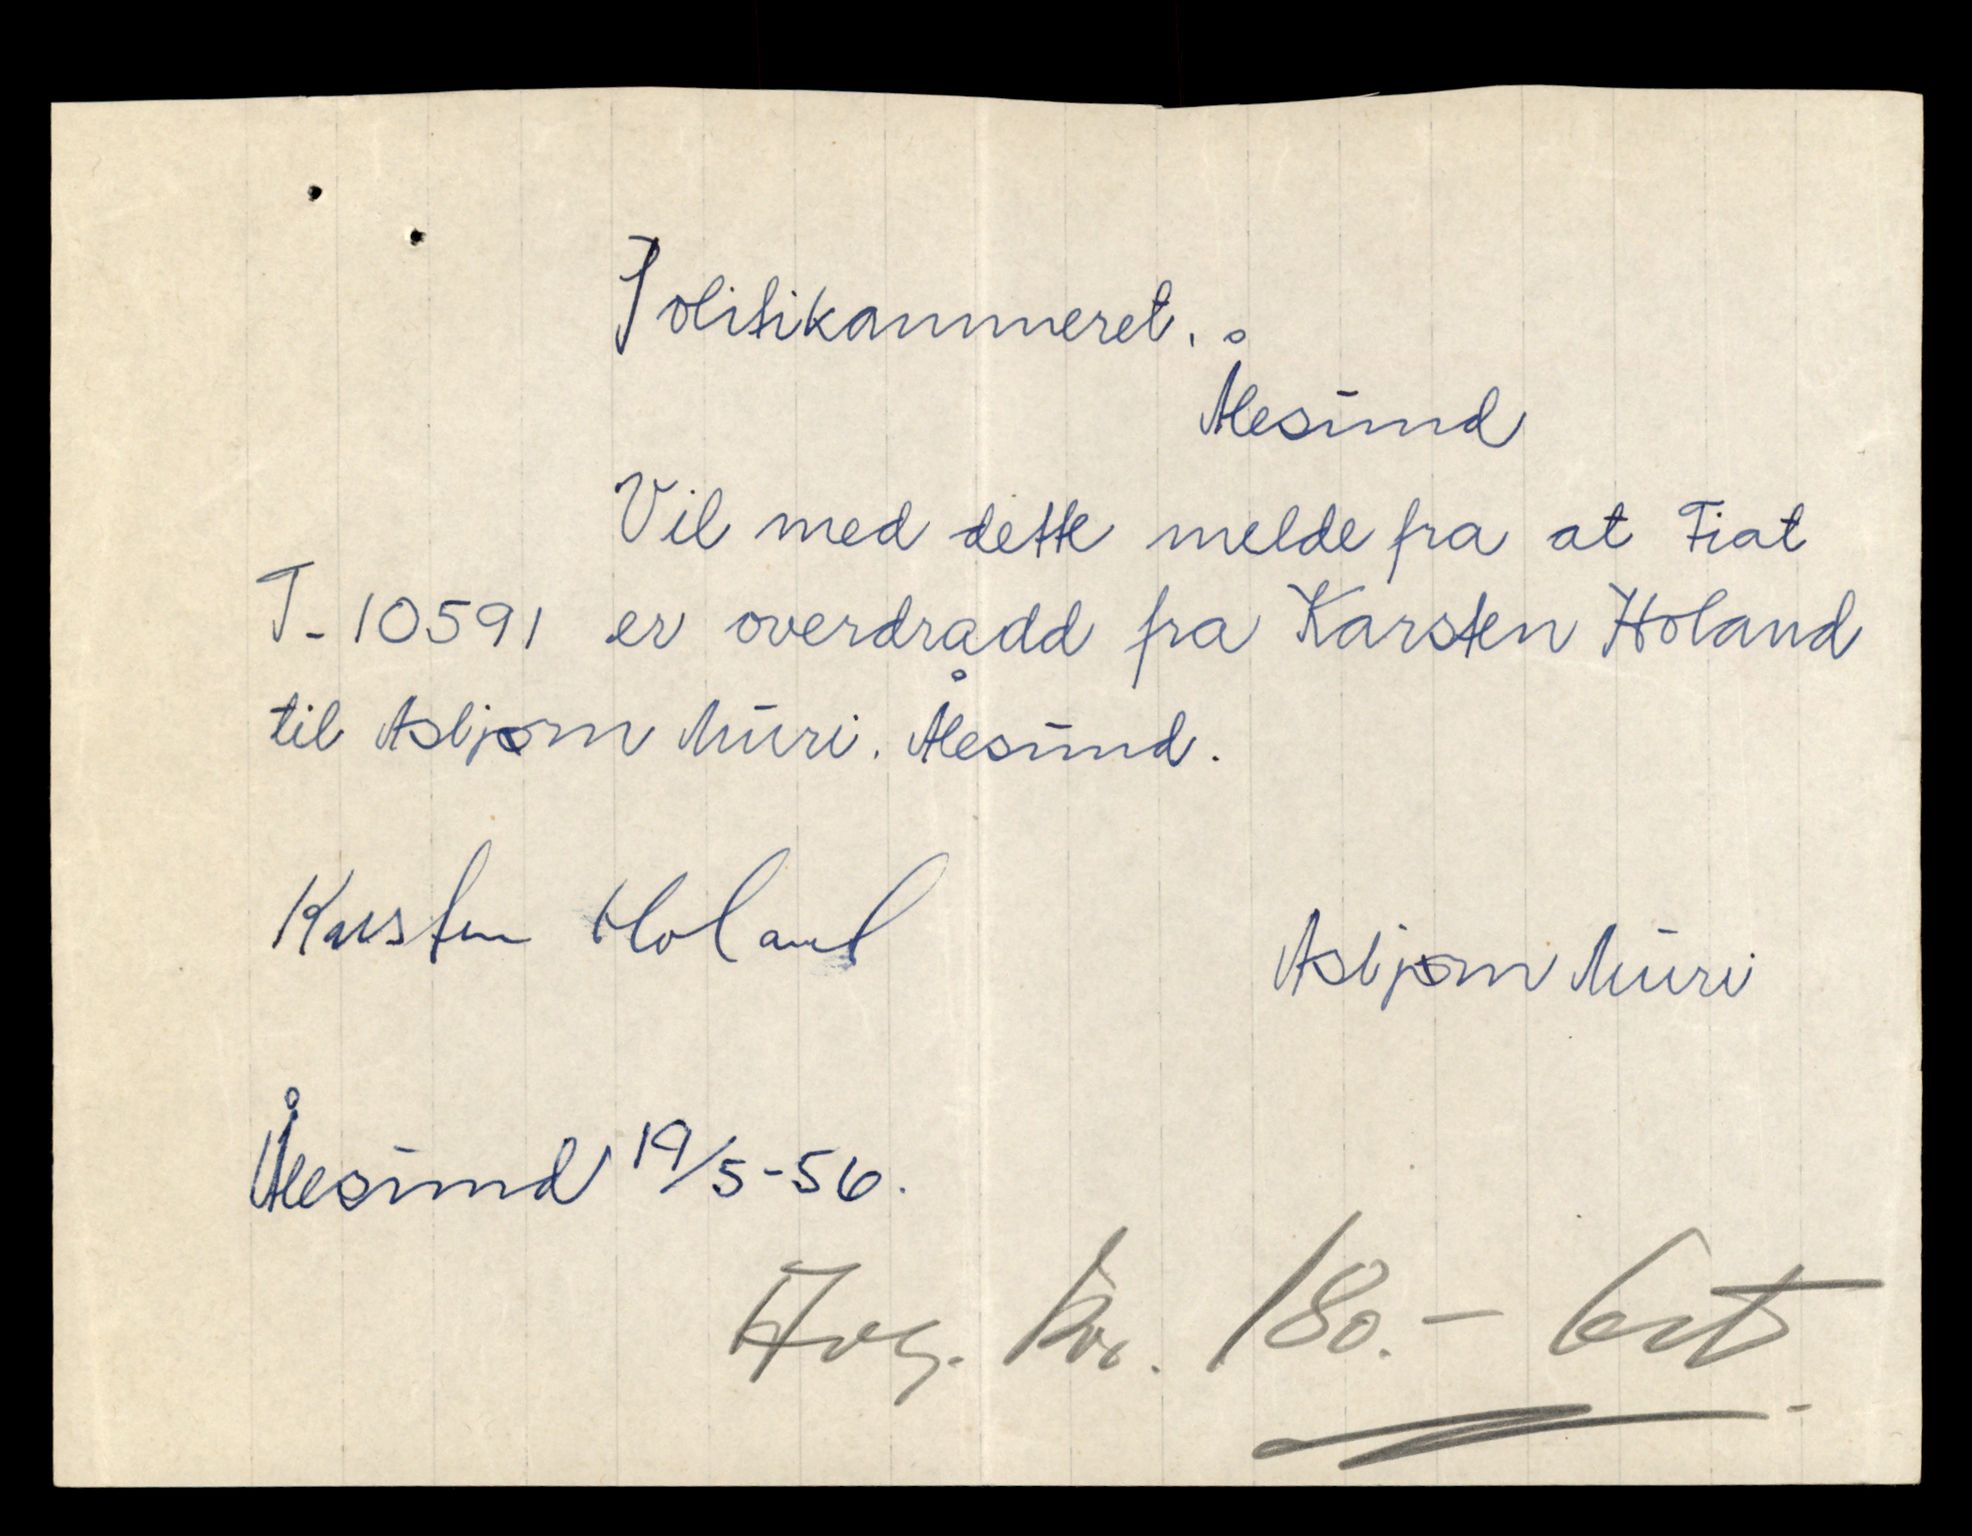 Politikammeret.
Ålesund
Vil med dette melde fra at Fiat
T-10591 er overdradd fra Karsten Holand
til Asbjørn Muri. Ålesund.
Karsten Holand
Asbjørn Muri
Ålesund 19/5-56.
Avg. kr. 180.- bet.